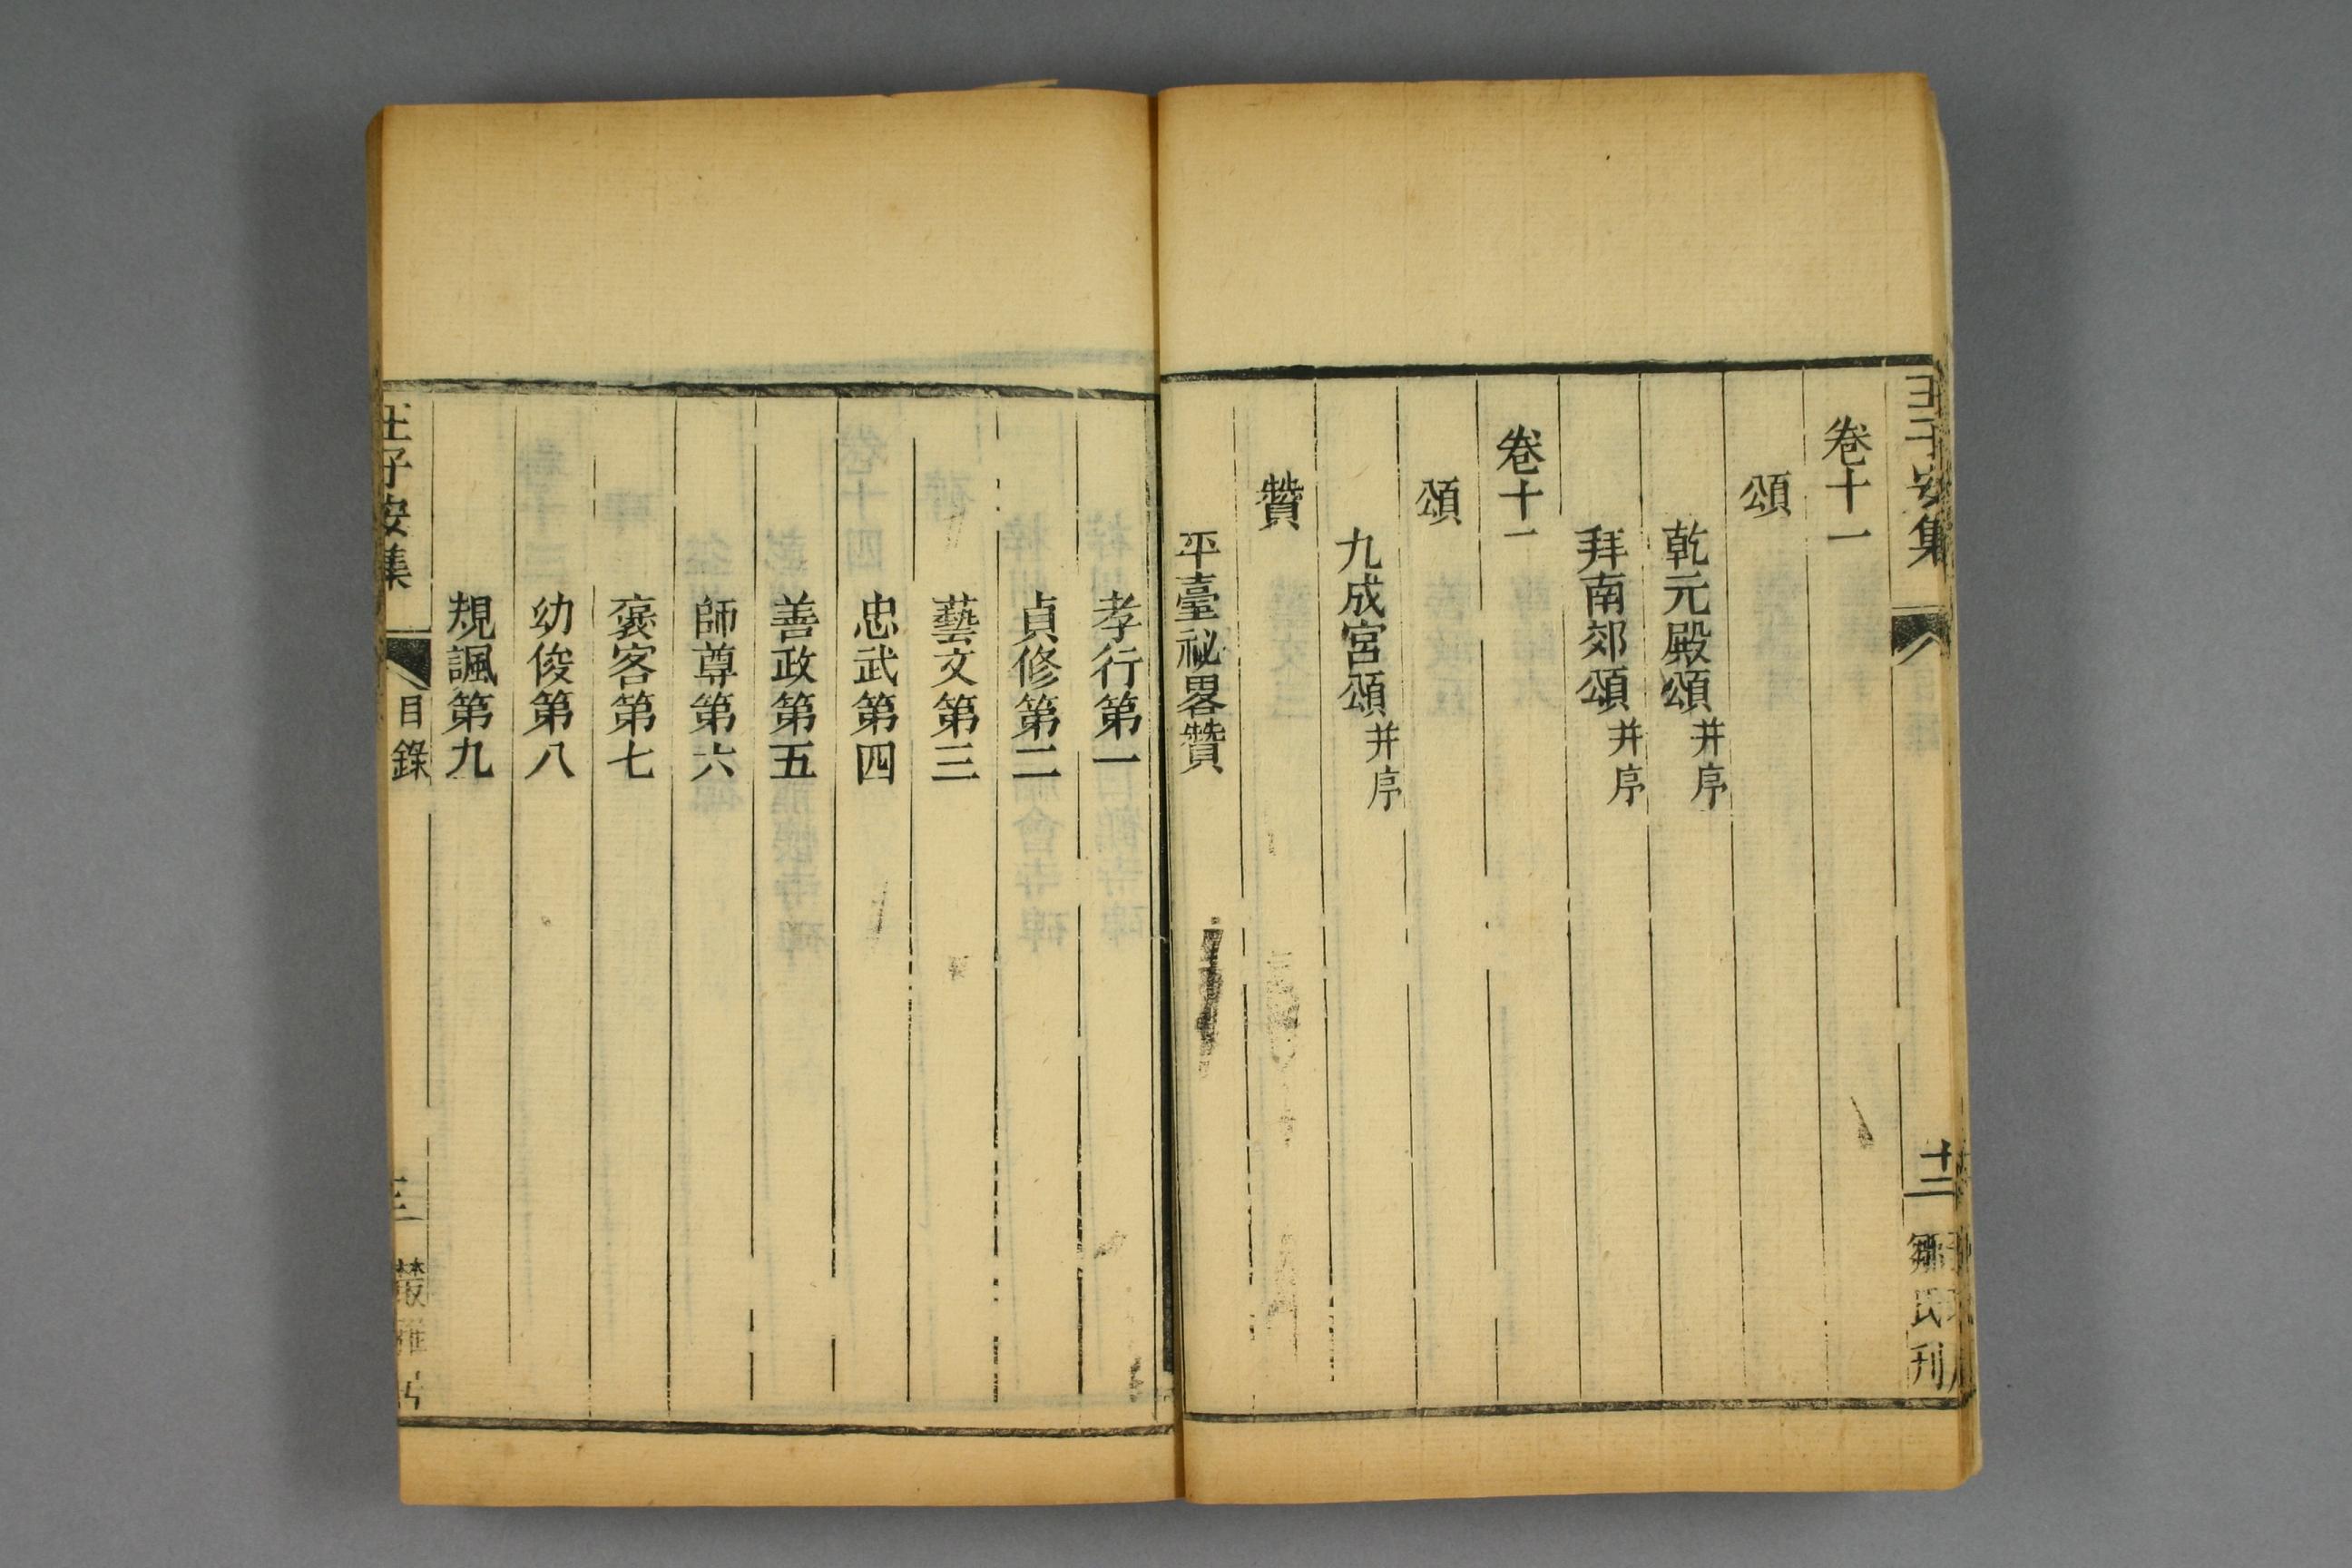 王子安集
十二
鄒氏刊
卷十一
頌
乾元殿頌并序
拜南郊頌并序
卷十一
頌
九成宮頌并序
贊
平臺祕畧贊
孝行第一
貞修第二
藝文第三
忠武第四
善政第五
師尊第六
褒客第七
幼俊第八
規諷第九
王子安集
目錄